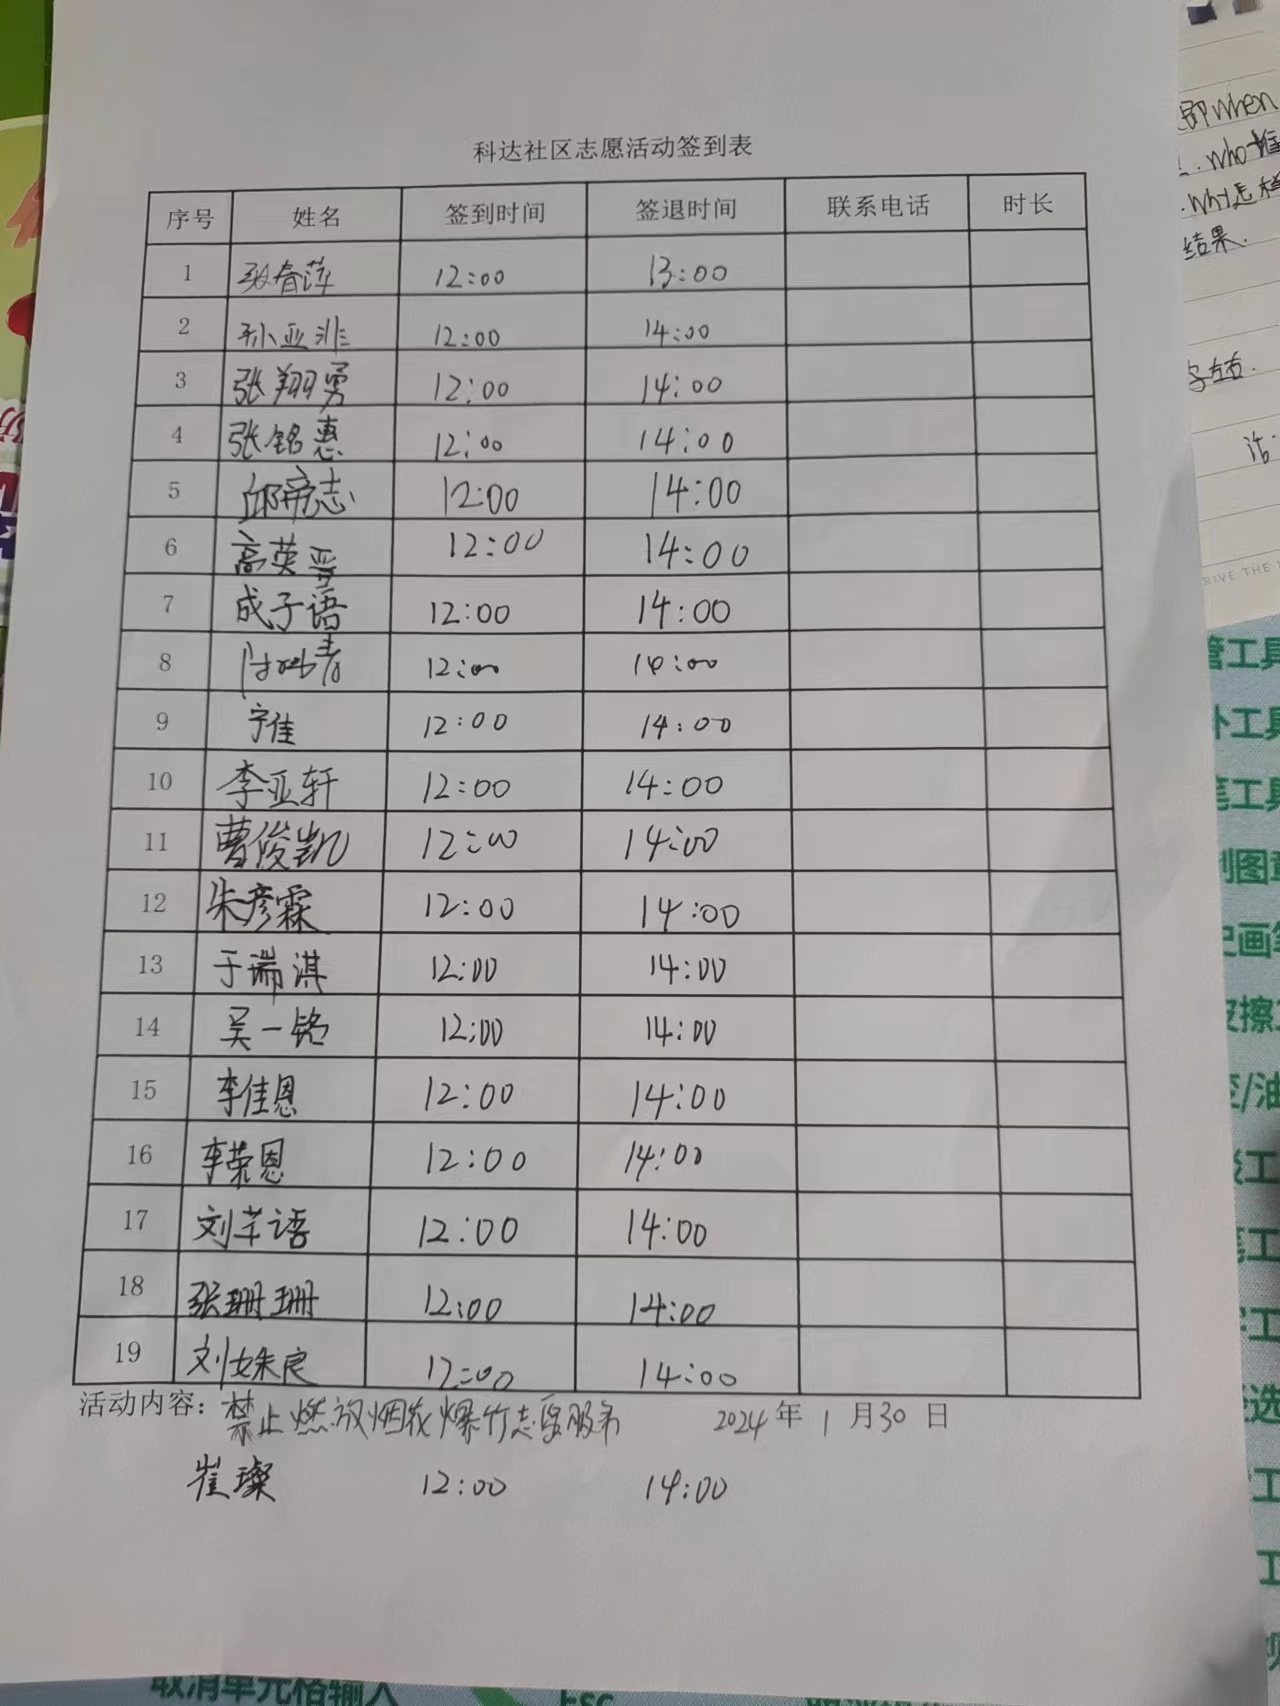 科达社区志愿活动签到表
序号 姓名 签到时间 签退时间 联系电话 时长
1 张春萍 12:00 13:00
2 孙亚非 12:00 14:00
3 张翔勇 12:00 14:00
4 张铭惠 12:00 14:00
5 邱帝志 12:00 14:00
6 高英晋 12:00 14:00
7 成子语 12:00 14:00
8 12:00 14:00
9 宁佳 12:00 14:00
10 李亚轩 12:00 14:00
11 曹俊凯 12:00 14:00
12 朱彦霖 12:00 14:00
13 于瑞淇 12:00 14:00
14 吴一铭 12:00 14:00
15 李佳恩 12:00 14:00
16 李荣恩 12:00 14:00
17 刘芊语 12:00 14:00
18 张珊珊 12:00 14:00
19 刘姝良 12:00 14:00
活动内容: 禁止燃放烟花爆竹志愿服务 2024年 1月30日
崔璨 12:00 14:00
即when
who
why怎样
结果.
字左右.
管工具
笔工具
取消单元格输入 ESC